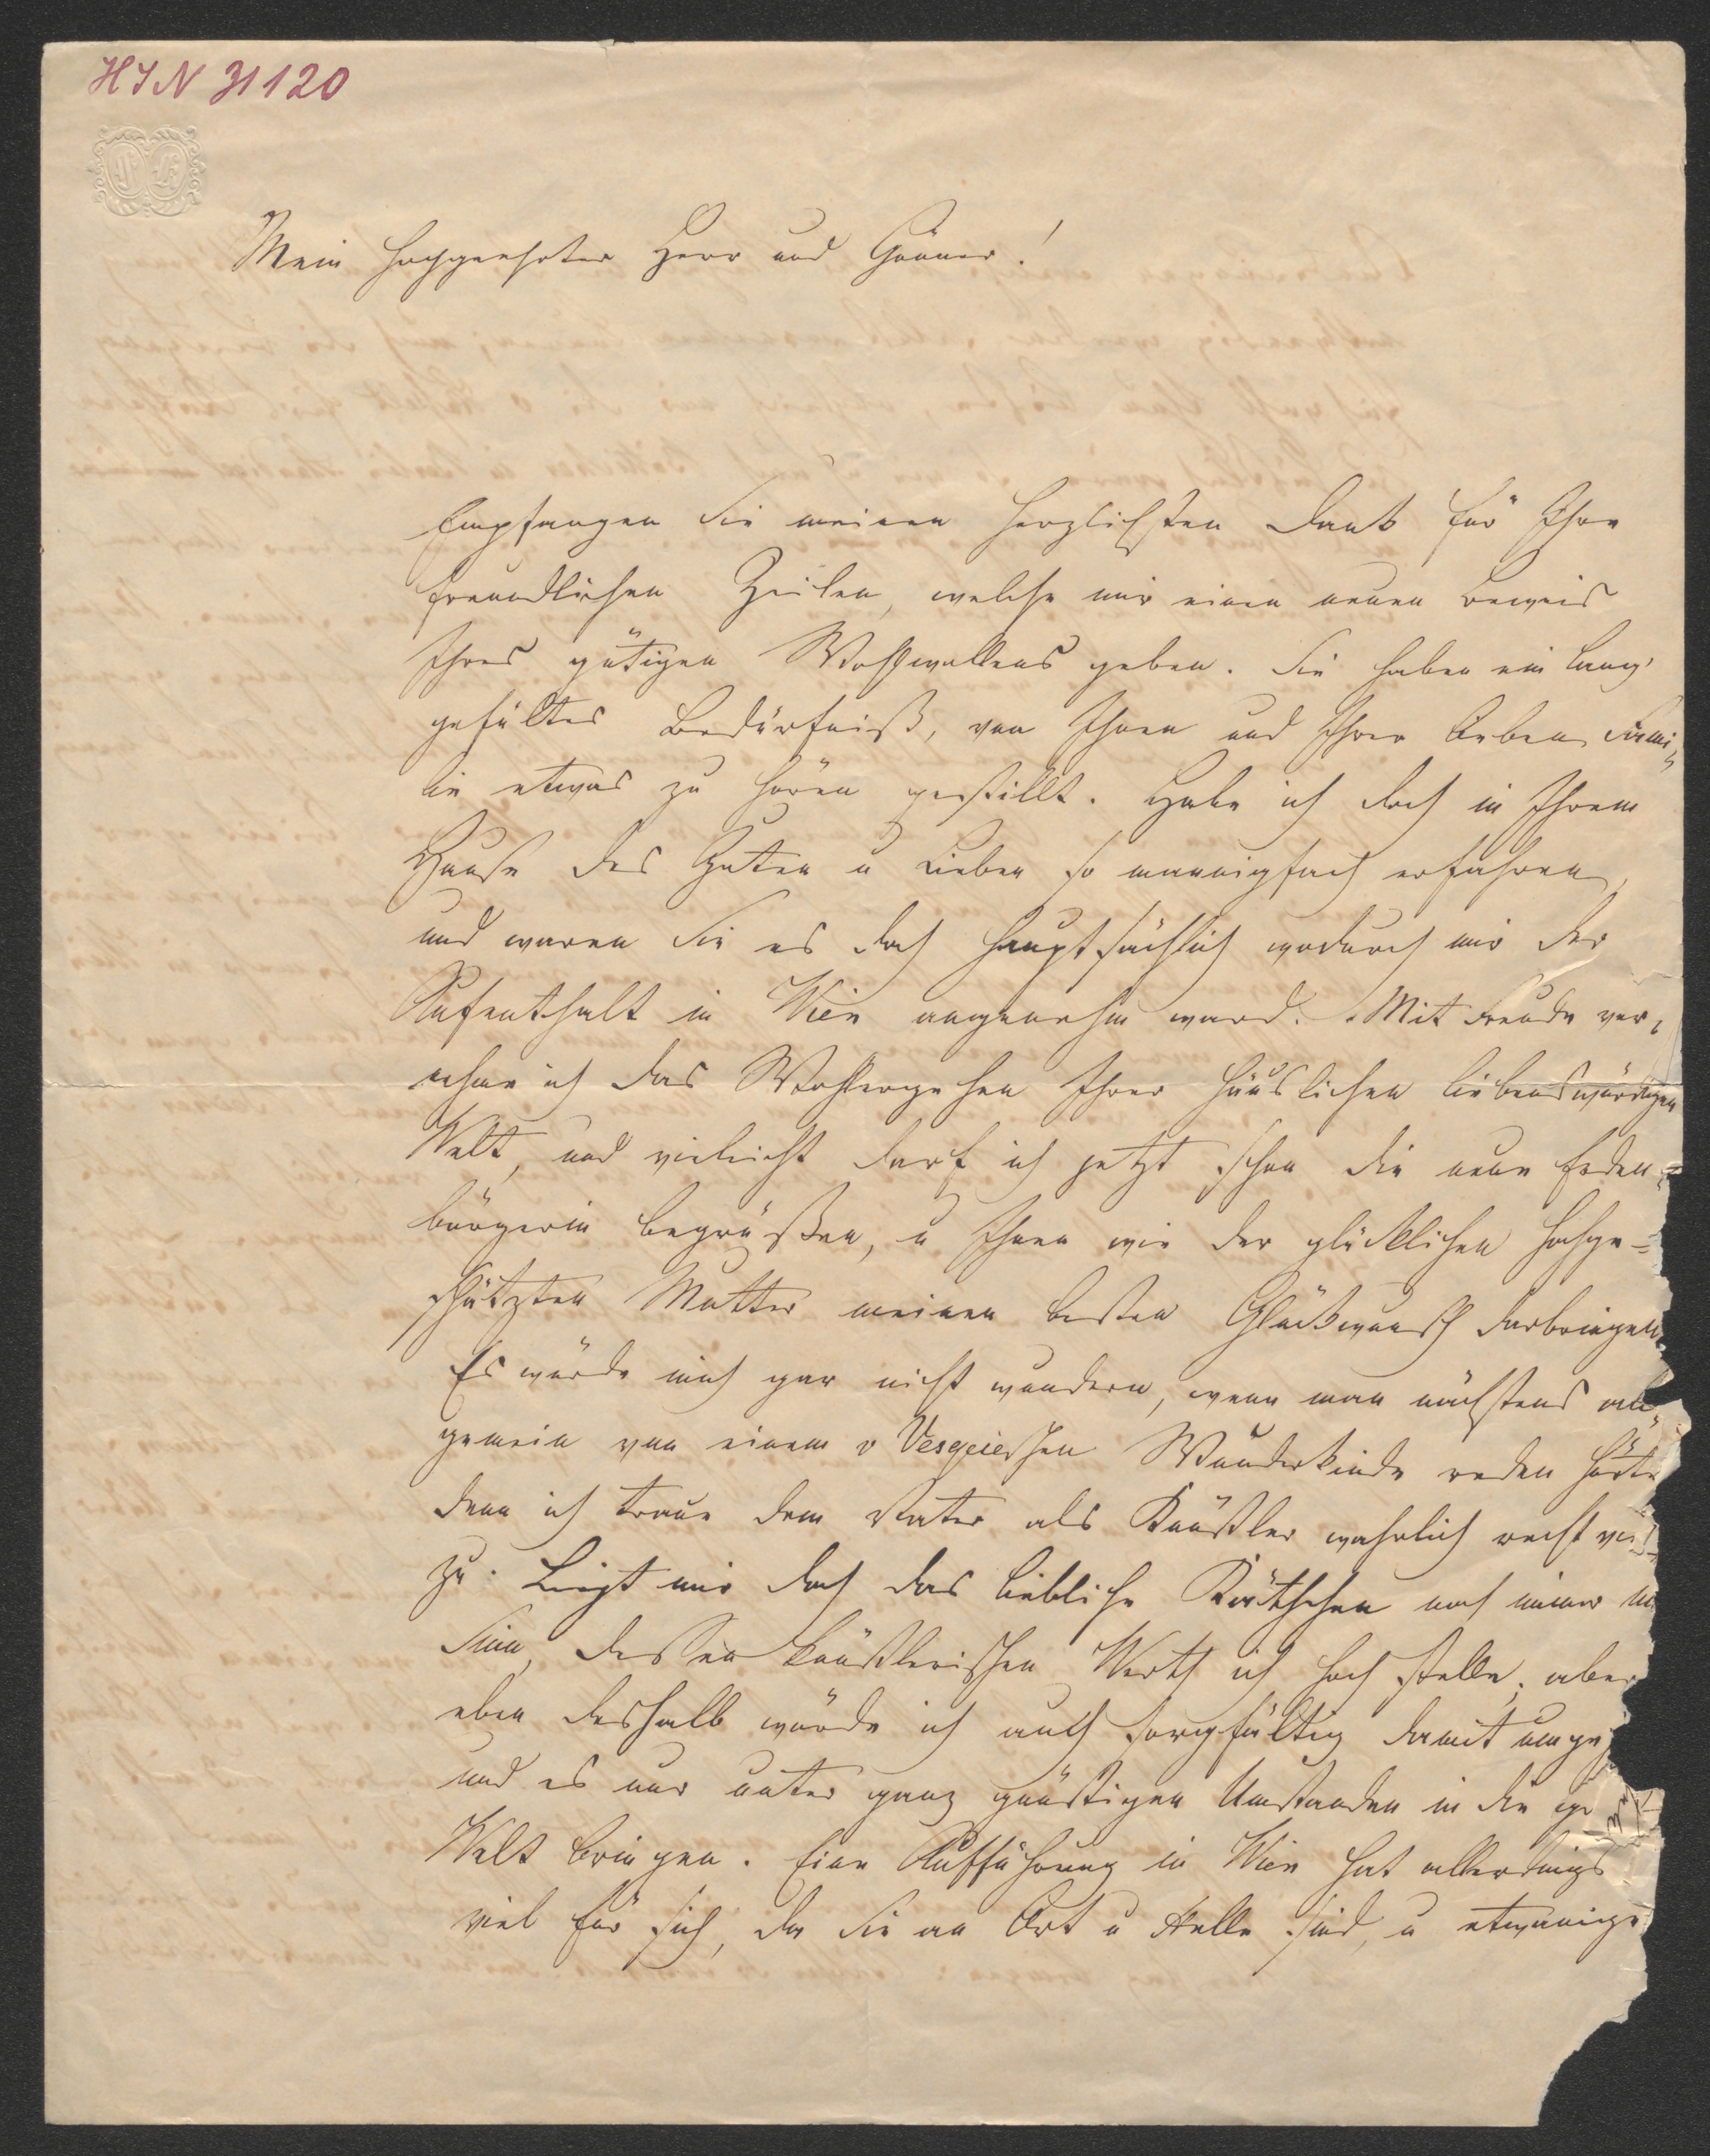 HIN 31120
Mein hochgeehrter Herr und Gönner!
Empfangen Sie meinen herzlichsten Dank für Ihre
freundlichen Zeilen, welche mir einen neuen Beweis
Ihres gütigen Wohlwollens geben. Sie haben ein lang'
gefültes Bedürfniß, von Ihnen und Ihrer lieben Fami,
lie etwas zu hören gestillt. Habe ich doch in Ihrem
Hause des Guten u Lieben so mannigfach erfahren,
und waren Sie es doch hauptsächlich wodurch mir der
Aufenthalt in Wien angenehm ward. Mit Freude ver,
nehme ich das Wohlergehen Ihrer häuslichen liebenswürdigen
Welt, und vieleicht darf ich jetzt schon die neue Erden=
bürgerin begrüßen, u Ihnen wie der glücklichen hochge=
schätzten Mutter meinen besten Glückwunsch darbringen.
Es würde mich gar nicht wundern, wenn man nächstens all
gemein von einem v Vesqueschen Wunderkinde reden hörte
denn ich traue dem Vater als Künstler wahrlich recht viel
zu. Liegt mir doch das liebliche Käthchen noch immer im
Sinn, dessen künstlerischen Werth ich hoch stelle, aber
eben deshalb würde ich auch sorgfältig damit umge
und es nur unter ganz günstigen Umstanden in die
Welt bringen. Eine Aufführung in Wien hat allerdings
viel für sich, da Sie an Ort u Stelle sind, u etwanige